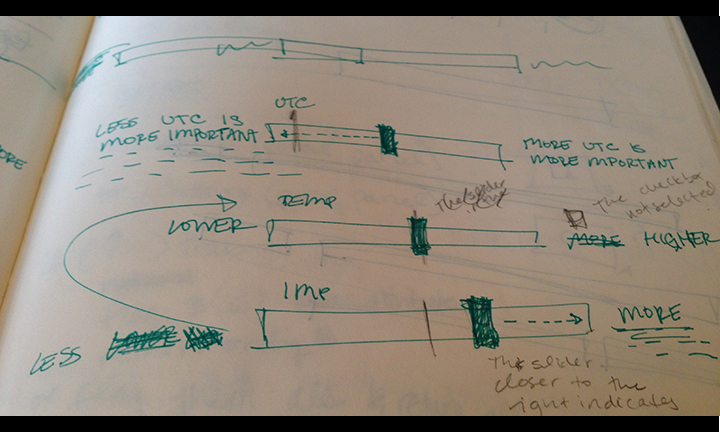 UTC
LESS UTC IS
MORE IMPORTANT
MORE UTC IS
MORE IMPORTANT
ORE
TEMP
The slider
The checkbox
not selected
LOWER
MORE HIGHER
IMP
LESS LOWER
MORE
The slider
closer to the
right indicates